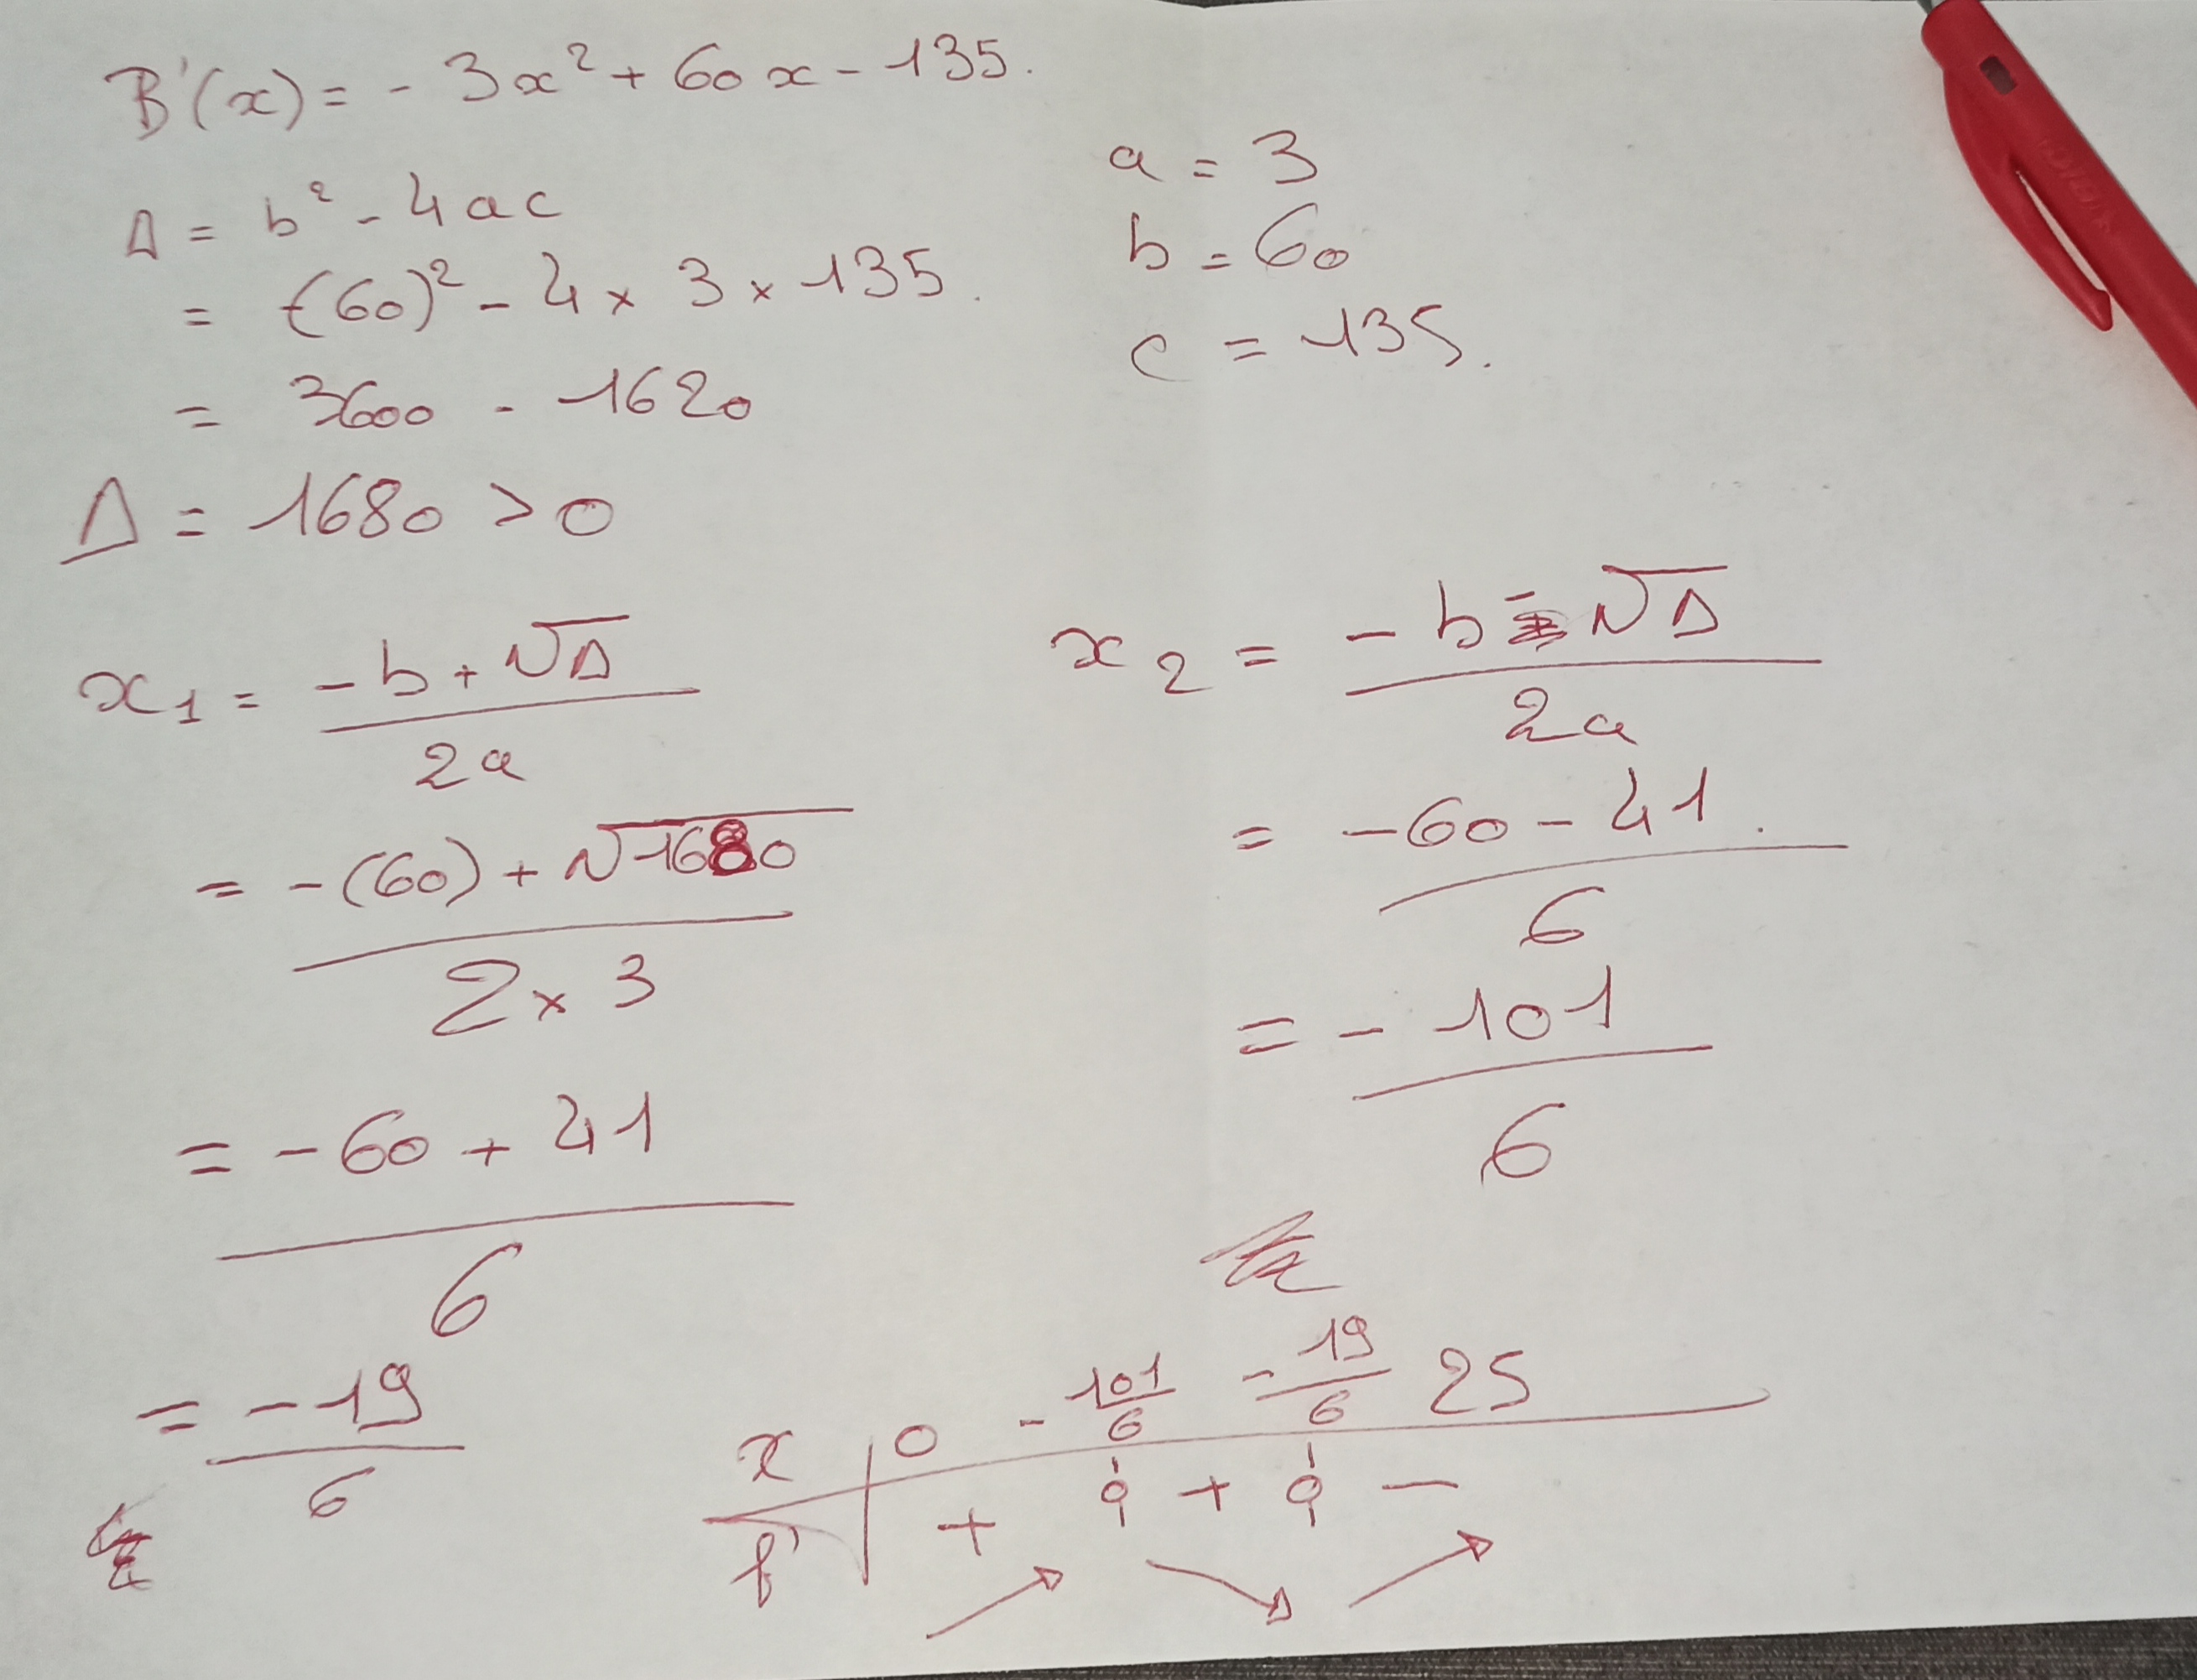 B'(x) = - 3x² + 60x - 135.
a = 3
b = 60
c = 135.
Δ = b² - 4ac
= (60)² - 4 × 3 × 135.
= 3600 - 1620
Δ = 1680 > 0
x₁ = (-b + √Δ) / 2a
= (-(60) + √1680) / (2 × 3)
= (-60 + 41) / 6
= -19 / 6
x₂ = (-b - √Δ) / 2a
= (-60 - 41) / 6
= -101 / 6
x | 0 -101/6 -19/6 25
f' | + 0 + 0 -